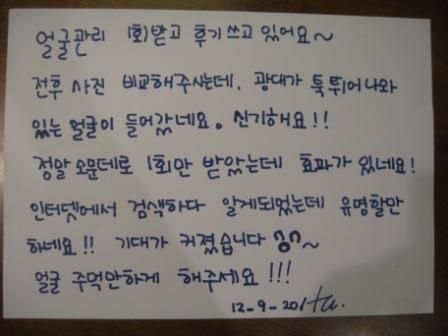 얼굴관리 1회받고 후기쓰고 있어요~
전후 사진 비교해주시는데, 광대가 툭튀어나와
있는 얼굴이 들어갔네요. 신기해요!!
정말 소문데로 1회만 받았는데 효과가 있네요!
인터넷에서 검색하다 알게되었는데 유명할만
하네요!! 기대가 커졌습니다 ^^~
얼굴 주먹만하게 해주세요!!!
12-9-20